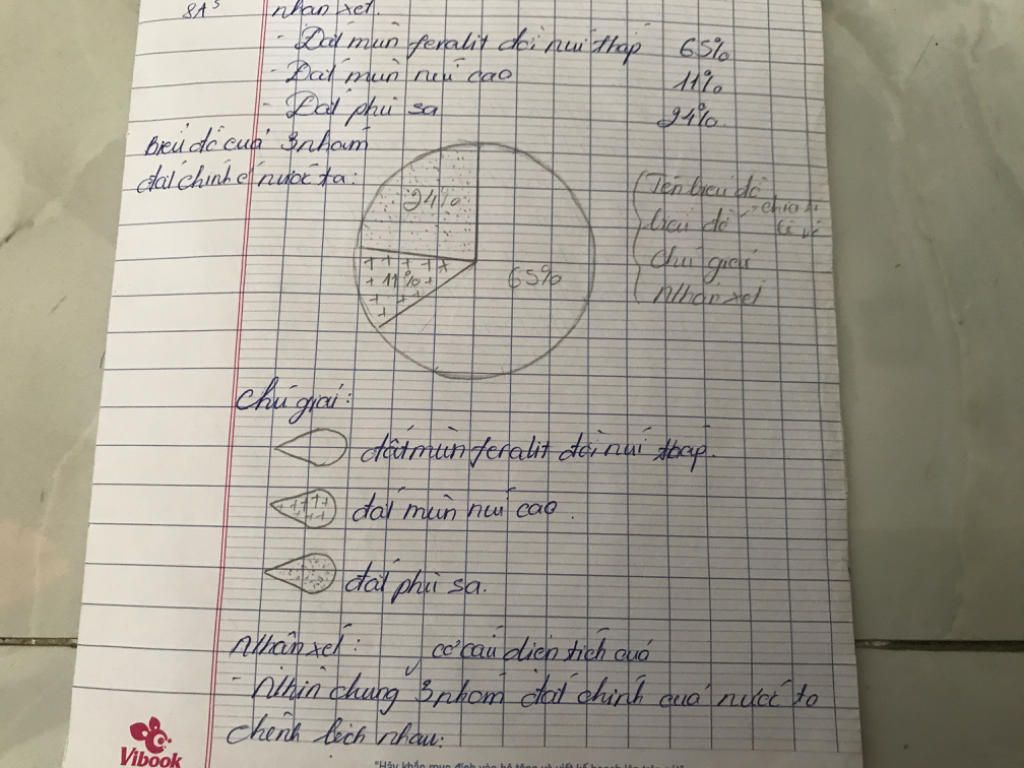 8A5
nhận xét.
- Đất mùn feralit đồi núi thấp 65%
- Đất mùn núi cao 11%
- Đất phù sa 24%
Biểu đồ của 3 nhóm
đất chính ở nước ta:
24%
11%
65%
Tên biểu đồ
biểu đồ
chú giải
Nhận xét
chú giải:
đất mùn feralit đồi núi thấp.
đất mùn núi cao.
đất phù sa.
Nhận xét: cơ cấu diện tích của
- Nhìn chung 3 nhóm đất chính của nước ta
chênh lệch nhau:
Vibook